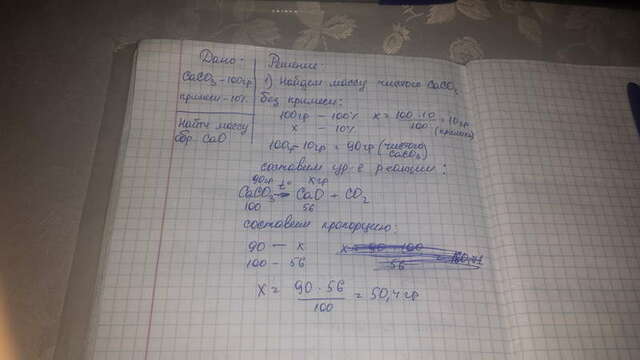 Дано:
CaCO₃ - 100гр
примеси - 10%
Найти массу
обр. CaO
Решение:
1) Найдем массу чистого CaCO₃
без примеси:
100гр - 100% x = 100 · 10 / 100 = 10гр
x - 10% (примеси)
100гр - 10гр = 90гр (чистого
CaCO₃)
составим ур-е реакции:
90гр xгр
CaCO₃ t° → CaO + CO₂
100 56
составим пропорцию:
90 — x
100 - 56
x = 90 · 56 / 100 = 50,4 гр